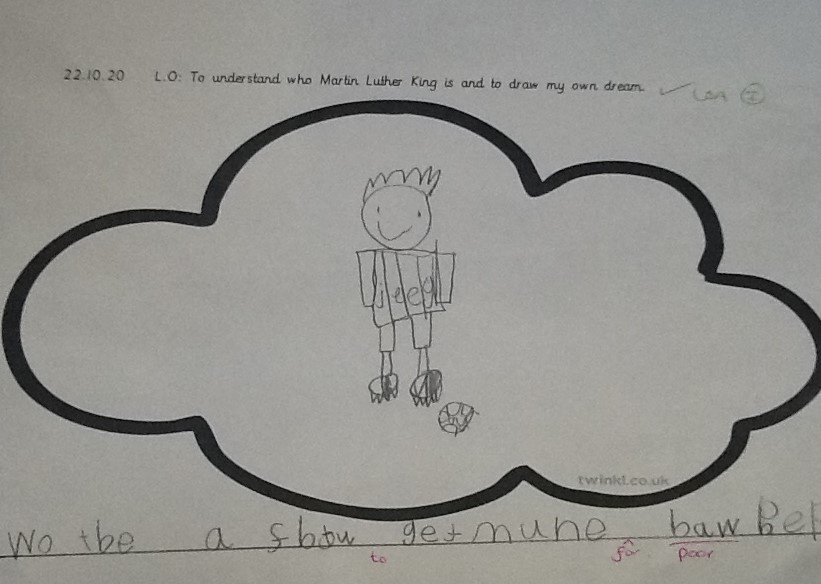 22.10.20 L.O: To understand who Martin Luther King is and to draw my own dream.
jeep
twinkl.co.uk
Wo tbe a fbow get mune baw Pep
to for poor